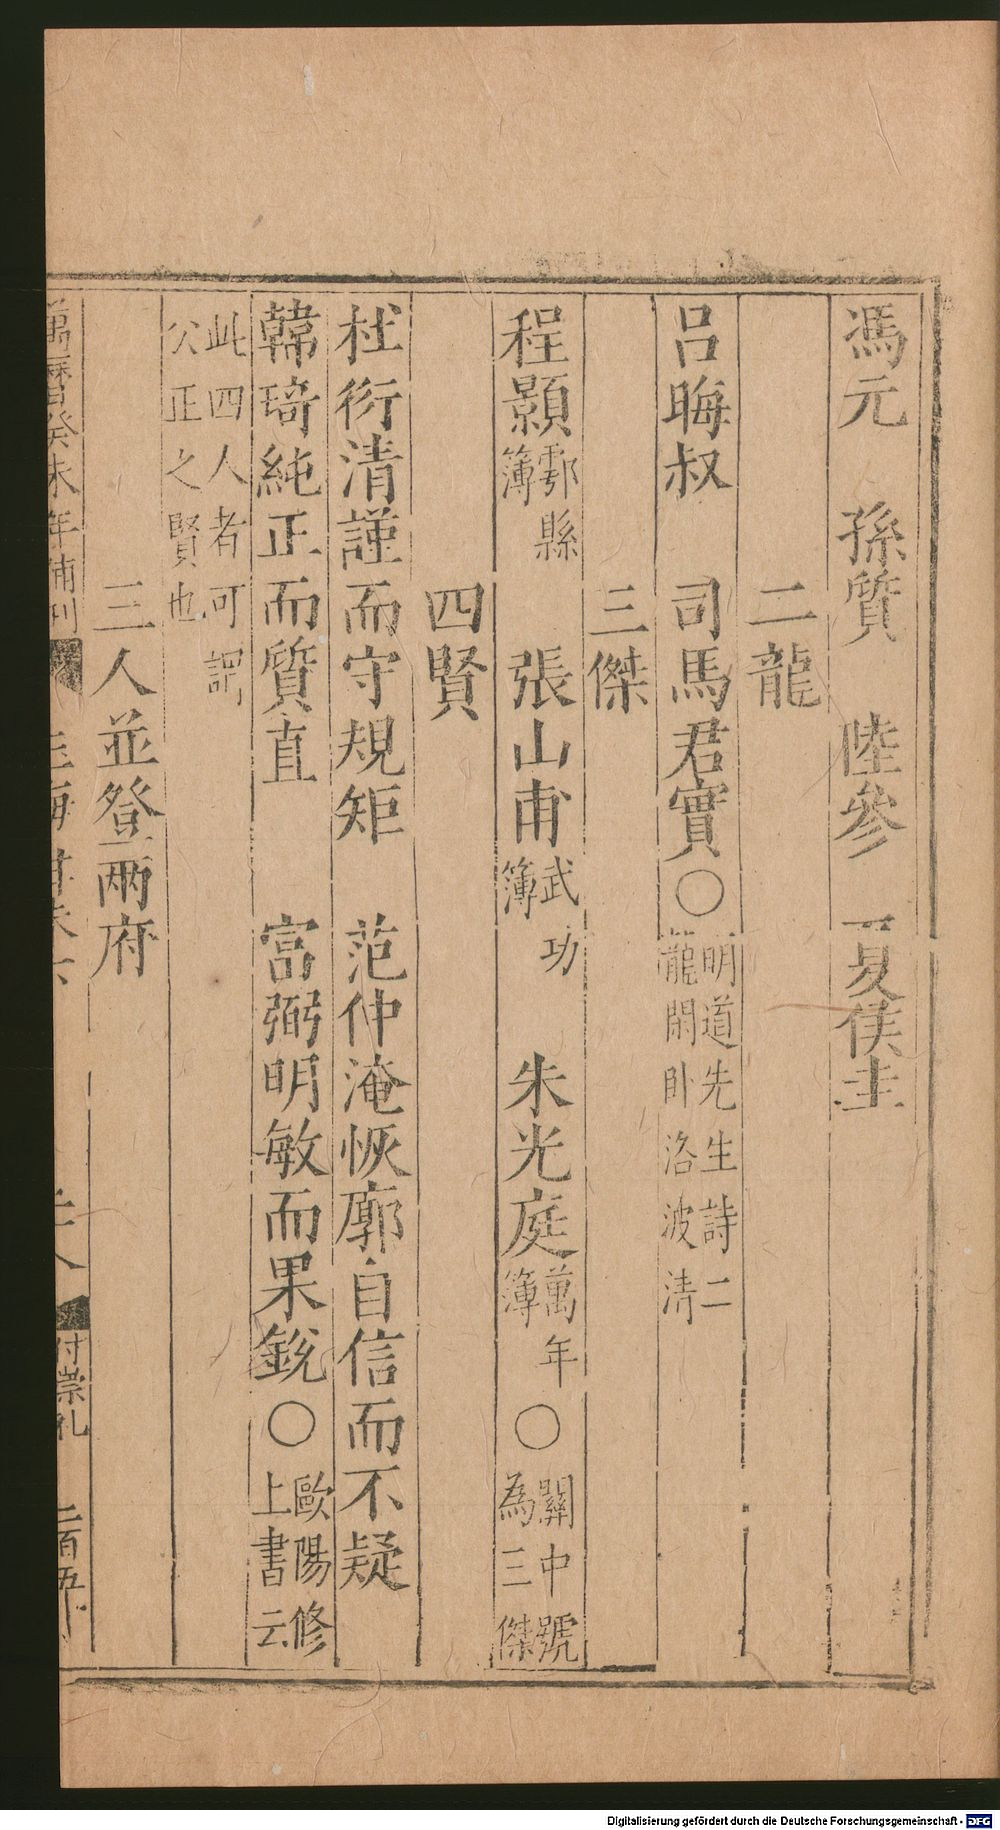 馮元　孫質　陸參　夏侯圭
二龍
呂晦叔　司馬君實〇明道先生詩二龍閑卧洛波清
三傑
程顥鄠縣簿　張山甫武功簿　朱光庭萬年簿〇關中號為三傑
四賢
杜衍清謹而守規矩　范仲淹恢廓自信而不疑
韓琦純正而質直　富弼明敏而果銳〇歐陽修上書云
此四人者可謂公正之賢也
三人並登兩府
萬曆癸未年補刊　玉海卷　六　付崇礼　二百五
Digitalisierung gefördert durch die Deutsche Forschungsgemeinschaft - DFG